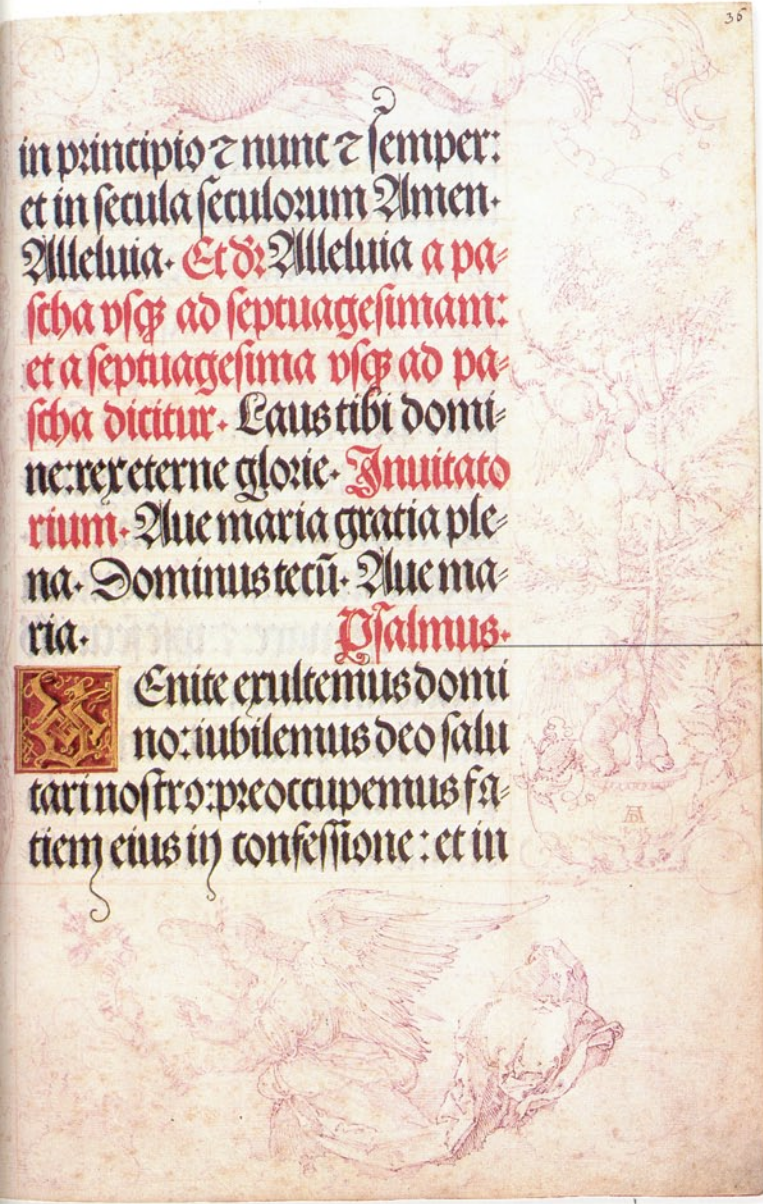 36
in principio ⁊ nunc ⁊ ſemper:
et in ſecula ſeculoꝛum Amen.
Alleluia. Et dꝛ Alleluia a pa⸗
ſcha vſqꝫ ad ſeptuageſimam:
et a ſeptuageſima vſqꝫ ad pa⸗
ſcha dicitur. Laus tibi domi⸗
ne: rex eterne gloꝛie. Inuitato
rium. Aue maria gratia ple⸗
na. Dominus tecū. Aue ma⸗
ria. Pſalmus.
VEnite exultemus domi
no: iubilemus deo ſalu
tari noſtro: pꝛeoccupemus fa⸗
ciem eius in confeſſione: et in
AD